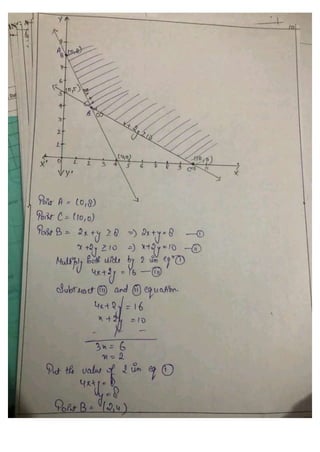 Y
A (0,8)
(0,5)
B
x+2y≥10
(4,0)
(10,0)
C
X'
X
Y'
Point A = (0,8)
Point C = (10,0)
Point B = 2x+y ≥ 8 => 2x+y=8 —①
x+2y ≥ 10 => x+2y=10 —②
Multiply both side by 2 in eqⁿ ①
4x+2y = 16 —③
Subtract ③ and ② equation
4x+2y = 16
x+2y = 10
- - -
3x = 6
x = 2
Put the value of 2 in eq ①
4x+y = 8
y = 8
Point B = (2,4)